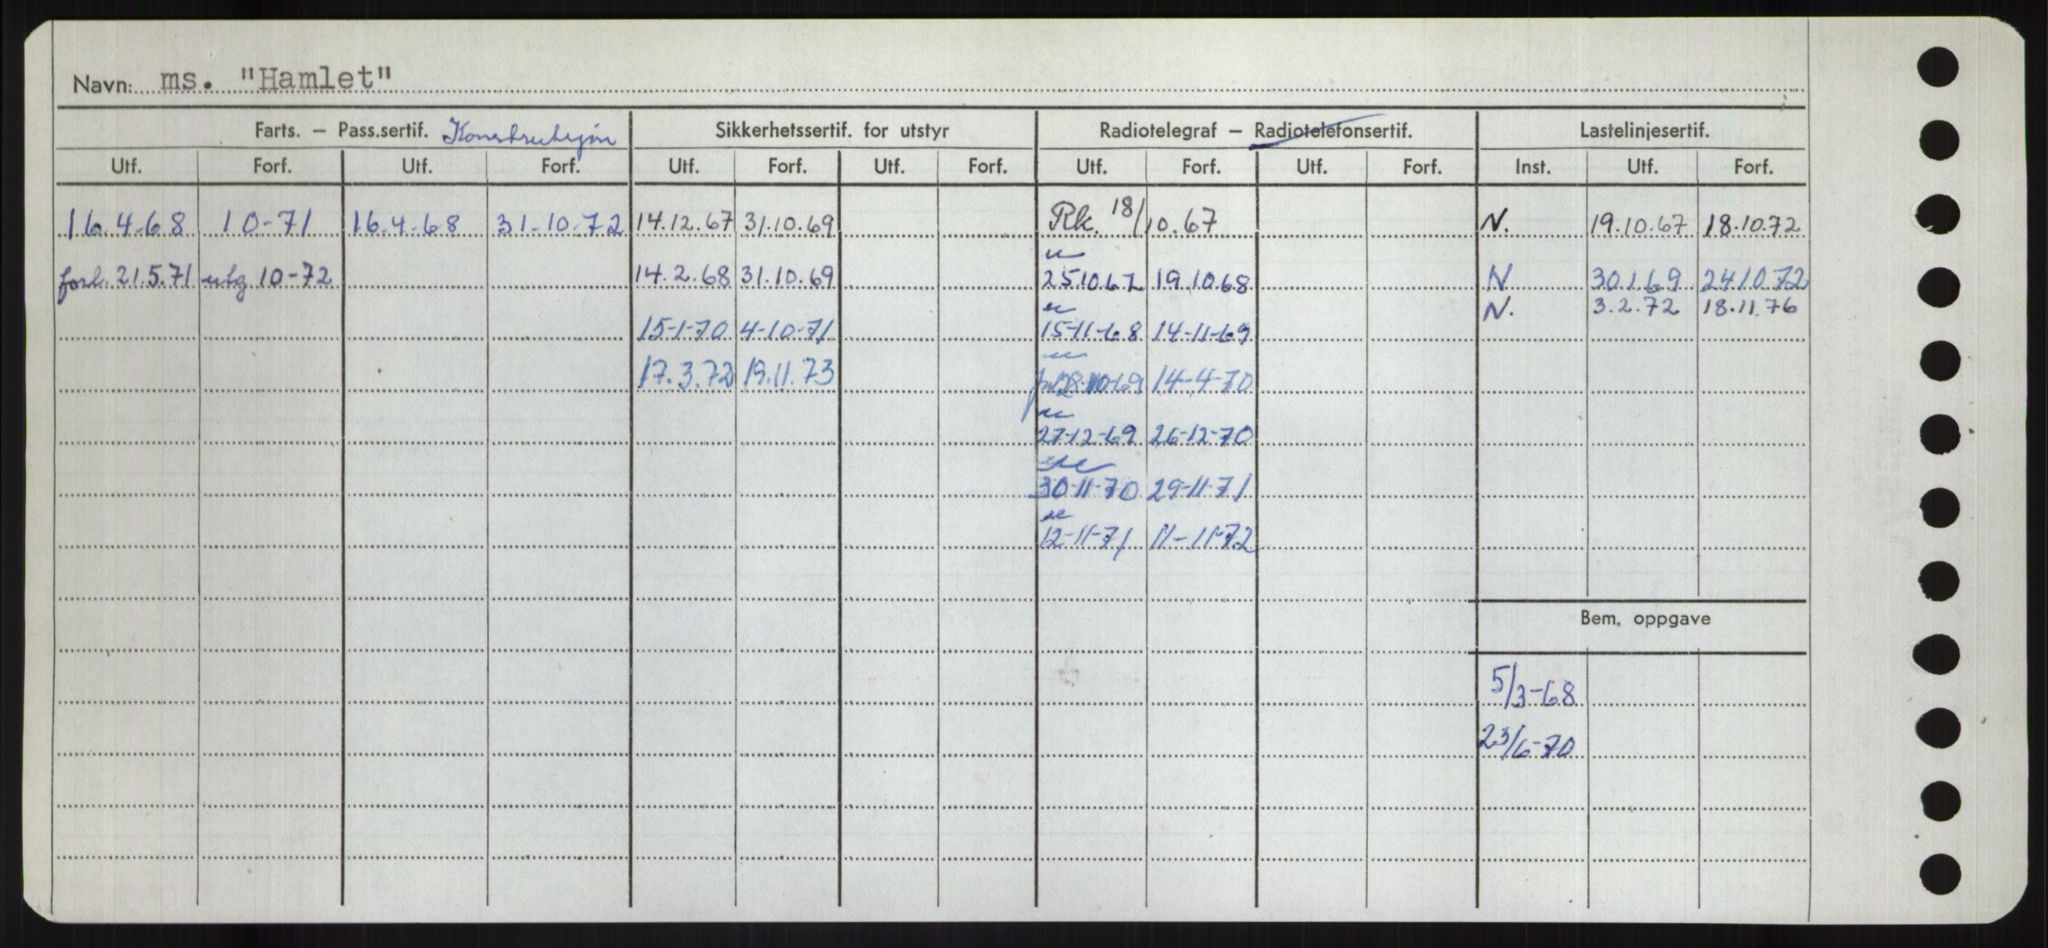 Navn: ms. "Hamlet"
Farts. – Pass.sertif. Konstruksjon Sikkerhetssertif. for utstyr Radiotelegraf – Radiotelefonsertif. Lastelinjesertif.
Utf. Forf. Utf. Forf. Utf. Forf. Utf. Forf. Utf. Forf. Utf. Forf. Inst. Utf. Forf.
16.4-68 10-71 16.4-68 31-10-72 14.12.67 31.10.69 Rk. 18/10.67 N. 19.10.67 18.10.72
forl. 21.5.71 utg 10-72 14.2.68 31.10.69 25.10.67 19.10.68 N 30.1.69 24.10.72
N. 3.2.72 18.11.76
15-1-70 4-10-71 15-11-68 14-11-69
17.3.72 19.11.73 28-10-69 14-4-70
27-12-69 26-12-70
30-11-70 29-11-71
12-11-71 11-11-72
Bem. oppgave
5/3-68
23/6-70